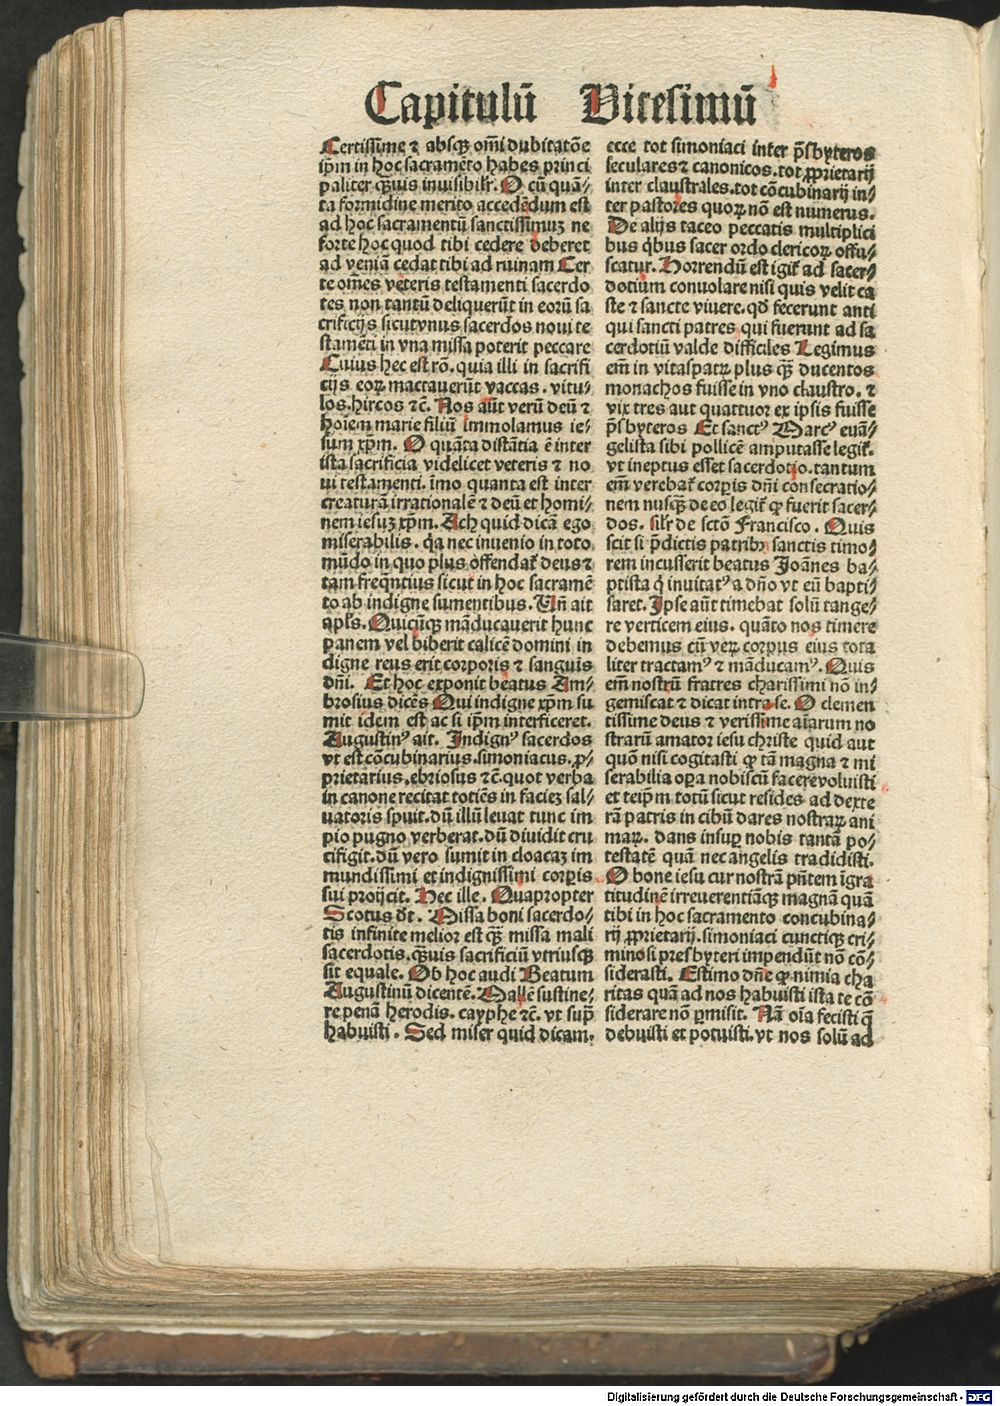 Capitulū Vicesimū
Certissime ⁊ absqꝫ omī dubitatōe
ip̄m in hoc sacramēto habes princi
paliter qꝫuis inuisibilr̄. O cū quā⸗
ta formidine merito accedēdum est
ad hoc sacramentū sanctissimuꝫ ne
forte hoc quod tibi cedere deberet
ad veniā cedat tibi ad ruinam Cer
te om̄es veteris testamenti sacerdo
tes non tantū deliquerūt in eorū sa
crificijs sicut vnus sacerdos noui te
stamēti in vna missa poterit peccare
Cuius hec est rō. quia illi in sacrifi
cijs eoꝝ mactauerūt vaccas. vitu⸗
los. hircos ⁊c̄. Nos aūt verū deū ⁊
hoīem marie filiū immolamus ie⸗
sum xp̄m. O quāta distātia ē inter
ista sacrificia videlicet veteris ⁊ no
ui testamenti. īmo quanta est inter
creaturā irrationalē ⁊ deū et homi⸗
nem iesuꝫ xp̄m. Ach quid dicā ego
miserabilis. q̄a nec inuenio in toto
mūdo in quo plus offendat᷑ deus ⁊
tam freq̄ntius sicut in hoc sacramē
to ab indigne sumentibus. Vn̄ ait
apl̄s. Quicūqꝫ māducauerit hunc
panem vel biberit calicē domini in
digne reus erit corporis ⁊ sanguis
dn̄i. Et hoc exponit beatus Am⸗
brosius dicēs Qui indigne xp̄m su
mit idem est ac si ip̄m interficeret.
Augustinꝰ ait. Indignꝰ sacerdos
vt est cōcubinarius. simoniacus. ꝓ⸗
prietarius. ebriosus ⁊c̄. quot verba
in canone recitat totiēs in facieꝫ sal⸗
uatoris spuit. dū illū leuat tunc im
pio pugno verberat. dū diuidit cru
cifigit. dū vero sumit in cloacaꝫ im
mundissimi et indignissimi corꝑis
sui proijcit. Hec ille. Quapropter
Scotus dt̄. Missa boni sacerdo⸗
tis infinite melior est qꝫ missa mali
sacerdotis. qꝫuis sacrificiū vtriusqꝫ
sit equale. Ob hoc audi Beatum
Augustinū dicentē. Mallē sustine⸗
re penā herodis. cayphe ⁊c̄. vt sup̄
habuisti. Sed miser quid dicam.
ecce tot simoniaci inter p̄sbyteros
seculares ⁊ canonicos. tot ꝓprietarij
inter claustrales. tot cōcubinarij in⸗
ter pastores quoꝝ nō est numerus.
De alijs taceo peccatis multiplici
bus q̄bus sacer ordo clericoꝝ offu⸗
scatur. Horrendū est igit᷑ ad sacer⸗
dotium conuolare nisi quis velit ca
ste ⁊ sancte viuere. qd̄ fecerunt anti
qui sancti patres qui fuerunt ad sa
cerdotiū valde difficiles Legimus
em̄ in vitaspatꝝ plus qꝫ ducentos
monachos fuisse in vno claustro. ⁊
vix tres aut quattuor ex ipsis fuisse
p̄sbyteros Et sanctꝰ Marcꝰ euā⸗
gelista sibi pollicē amputasse legit᷑.
vt ineptus esset sacerdotio. tantum
em̄ verebat᷑ corꝑis dn̄i consecratio⸗
nem nusqꝫ de eo legit᷑ ꝙ fuerit sacer⸗
dos. silr̄ de sctō Francisco. Quis
scit si p̄dictis patribꝫ sanctis timo⸗
rem incusserit beatus Joānes ba⸗
ptista q̄ inuitatꝰ a dn̄o vt eū bapti⸗
saret. Ipse aūt timebat solū tange⸗
re verticem eius. quāto nos timere
debemus cū veꝝ corpus eius tota
liter tractamꝰ ⁊ māducamꝰ. Quis
em̄ nostrū fratres charissimi nō in⸗
gemiscat ⁊ dicat intra se. O clemen
tissime deus ⁊ verissime aīarum no
straꝝ amator iesu christe quid aut
quō nisi cogitasti ꝙ tā magna ⁊ mi
serabilia oꝑa nobiscū facere voluisti
et teip̄m totū sicut resides ad dexte
rā patris in cibū dares nostraꝝ ani
maꝝ. dans insuꝑ nobis tantā po⸗
testatē quā nec angelis tradidisti.
O bone iesu cur nostrā pn̄tem īgra
titudinē irreuerentiāqꝫ magnā quā
tibi in hoc sacramento concubina⸗
rij ꝓprietarij. simoniaci cunctiqꝫ cri⸗
minosi presbyteri impendūt nō cō⸗
siderasti. Estimo dn̄e ꝙ nimia cha
ritas quā ad nos habuisti ista te cō
siderare nō ꝑmisit. Nā oīa fecisti q̄
debuisti et potuisti. vt nos solū ad
Digitalisierung gefördert durch die Deutsche Forschungsgemeinschaft - DFG